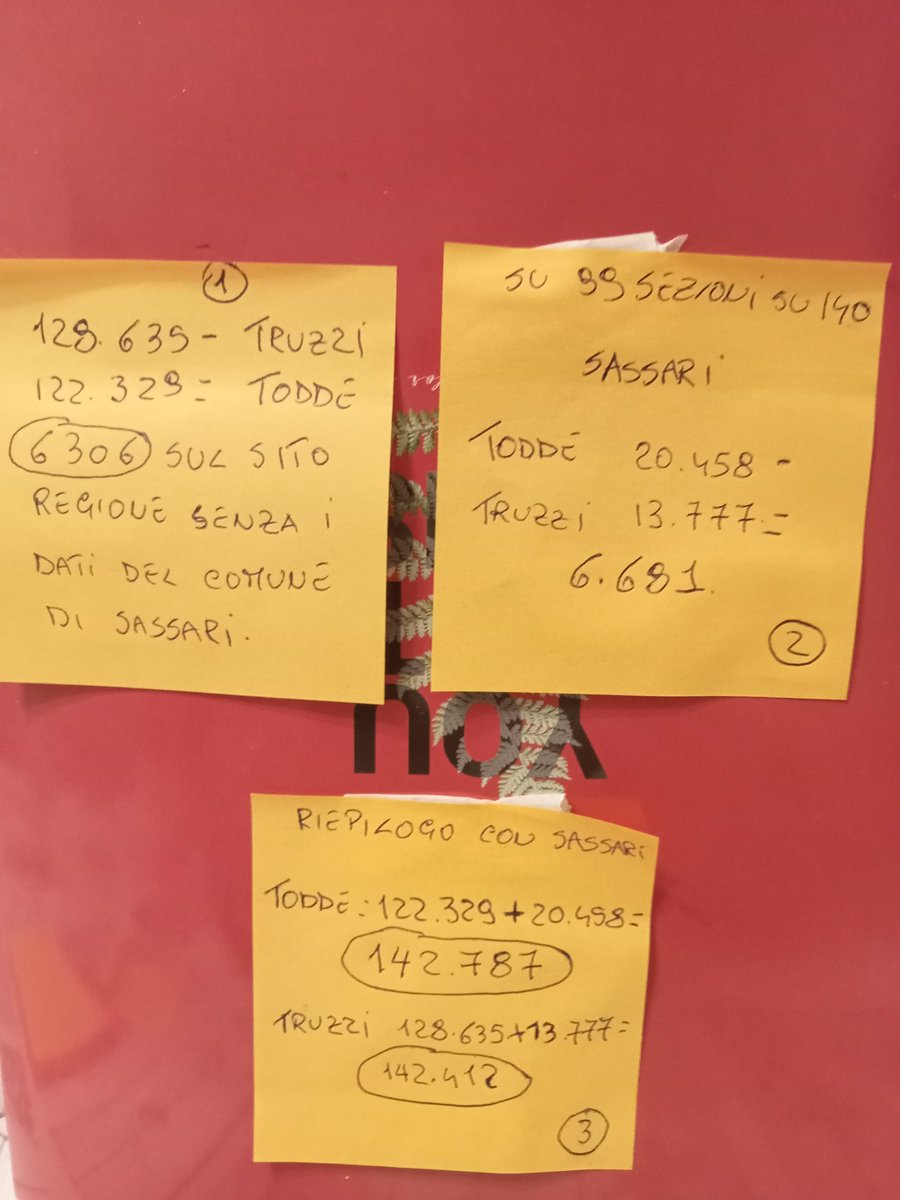 1
128.635 - TRUZZI
122.329 = TODDE
6306 SUL SITO
REGIONE SENZA I
DATI DEL COMUNE
DI SASSARI.
SU 99 SEZIONI SU 140
SASSARI
TODDE 20.458 -
TRUZZI 13.777 =
6.681.
2
you
RIEPILOGO CON SASSARI
TODDE: 122.329 + 20.458 =
142.787
TRUZZI 128.635 + 13.777 =
142.412
3